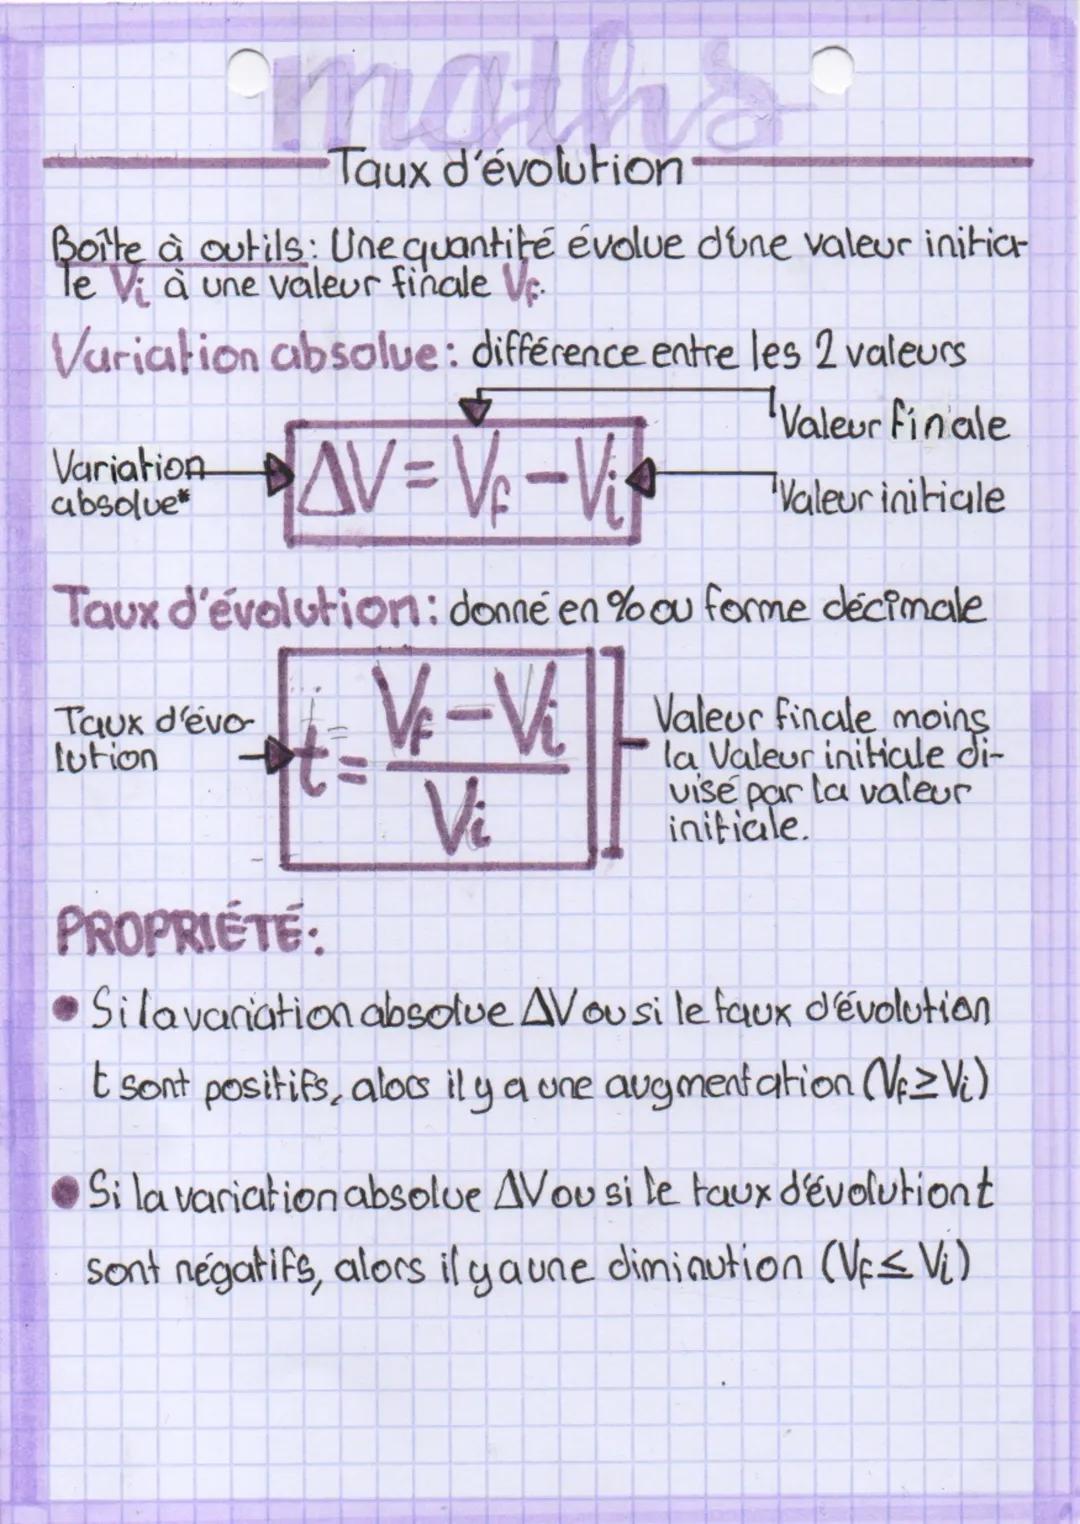 maths
Taux d'évolution
Boîte à outils: Une quantité évolue d'une valeur initia-
le Vi à une valeur finale Vf.
Variation absolue: différence entre les 2 valeurs
Valeur finale
Variation
absolue*
ΔV = Vf - Vi
Valeur initiale
Taux d'évolution: donné en % ou forme décimale
Taux d'évo-
lution
t = (Vf - Vi) / Vi
Valeur finale moins
la Valeur initiale di-
visé par la valeur
initiale.
PROPRIÉTÉ:
• Si la variation absolue ΔV ou si le taux d'évolution
t sont positifs, alors il y a une augmentation (Vf ≥ Vi)
• Si la variation absolue ΔV ou si le taux d'évolution t
sont négatifs, alors il y a une diminution (Vf ≤ Vi)